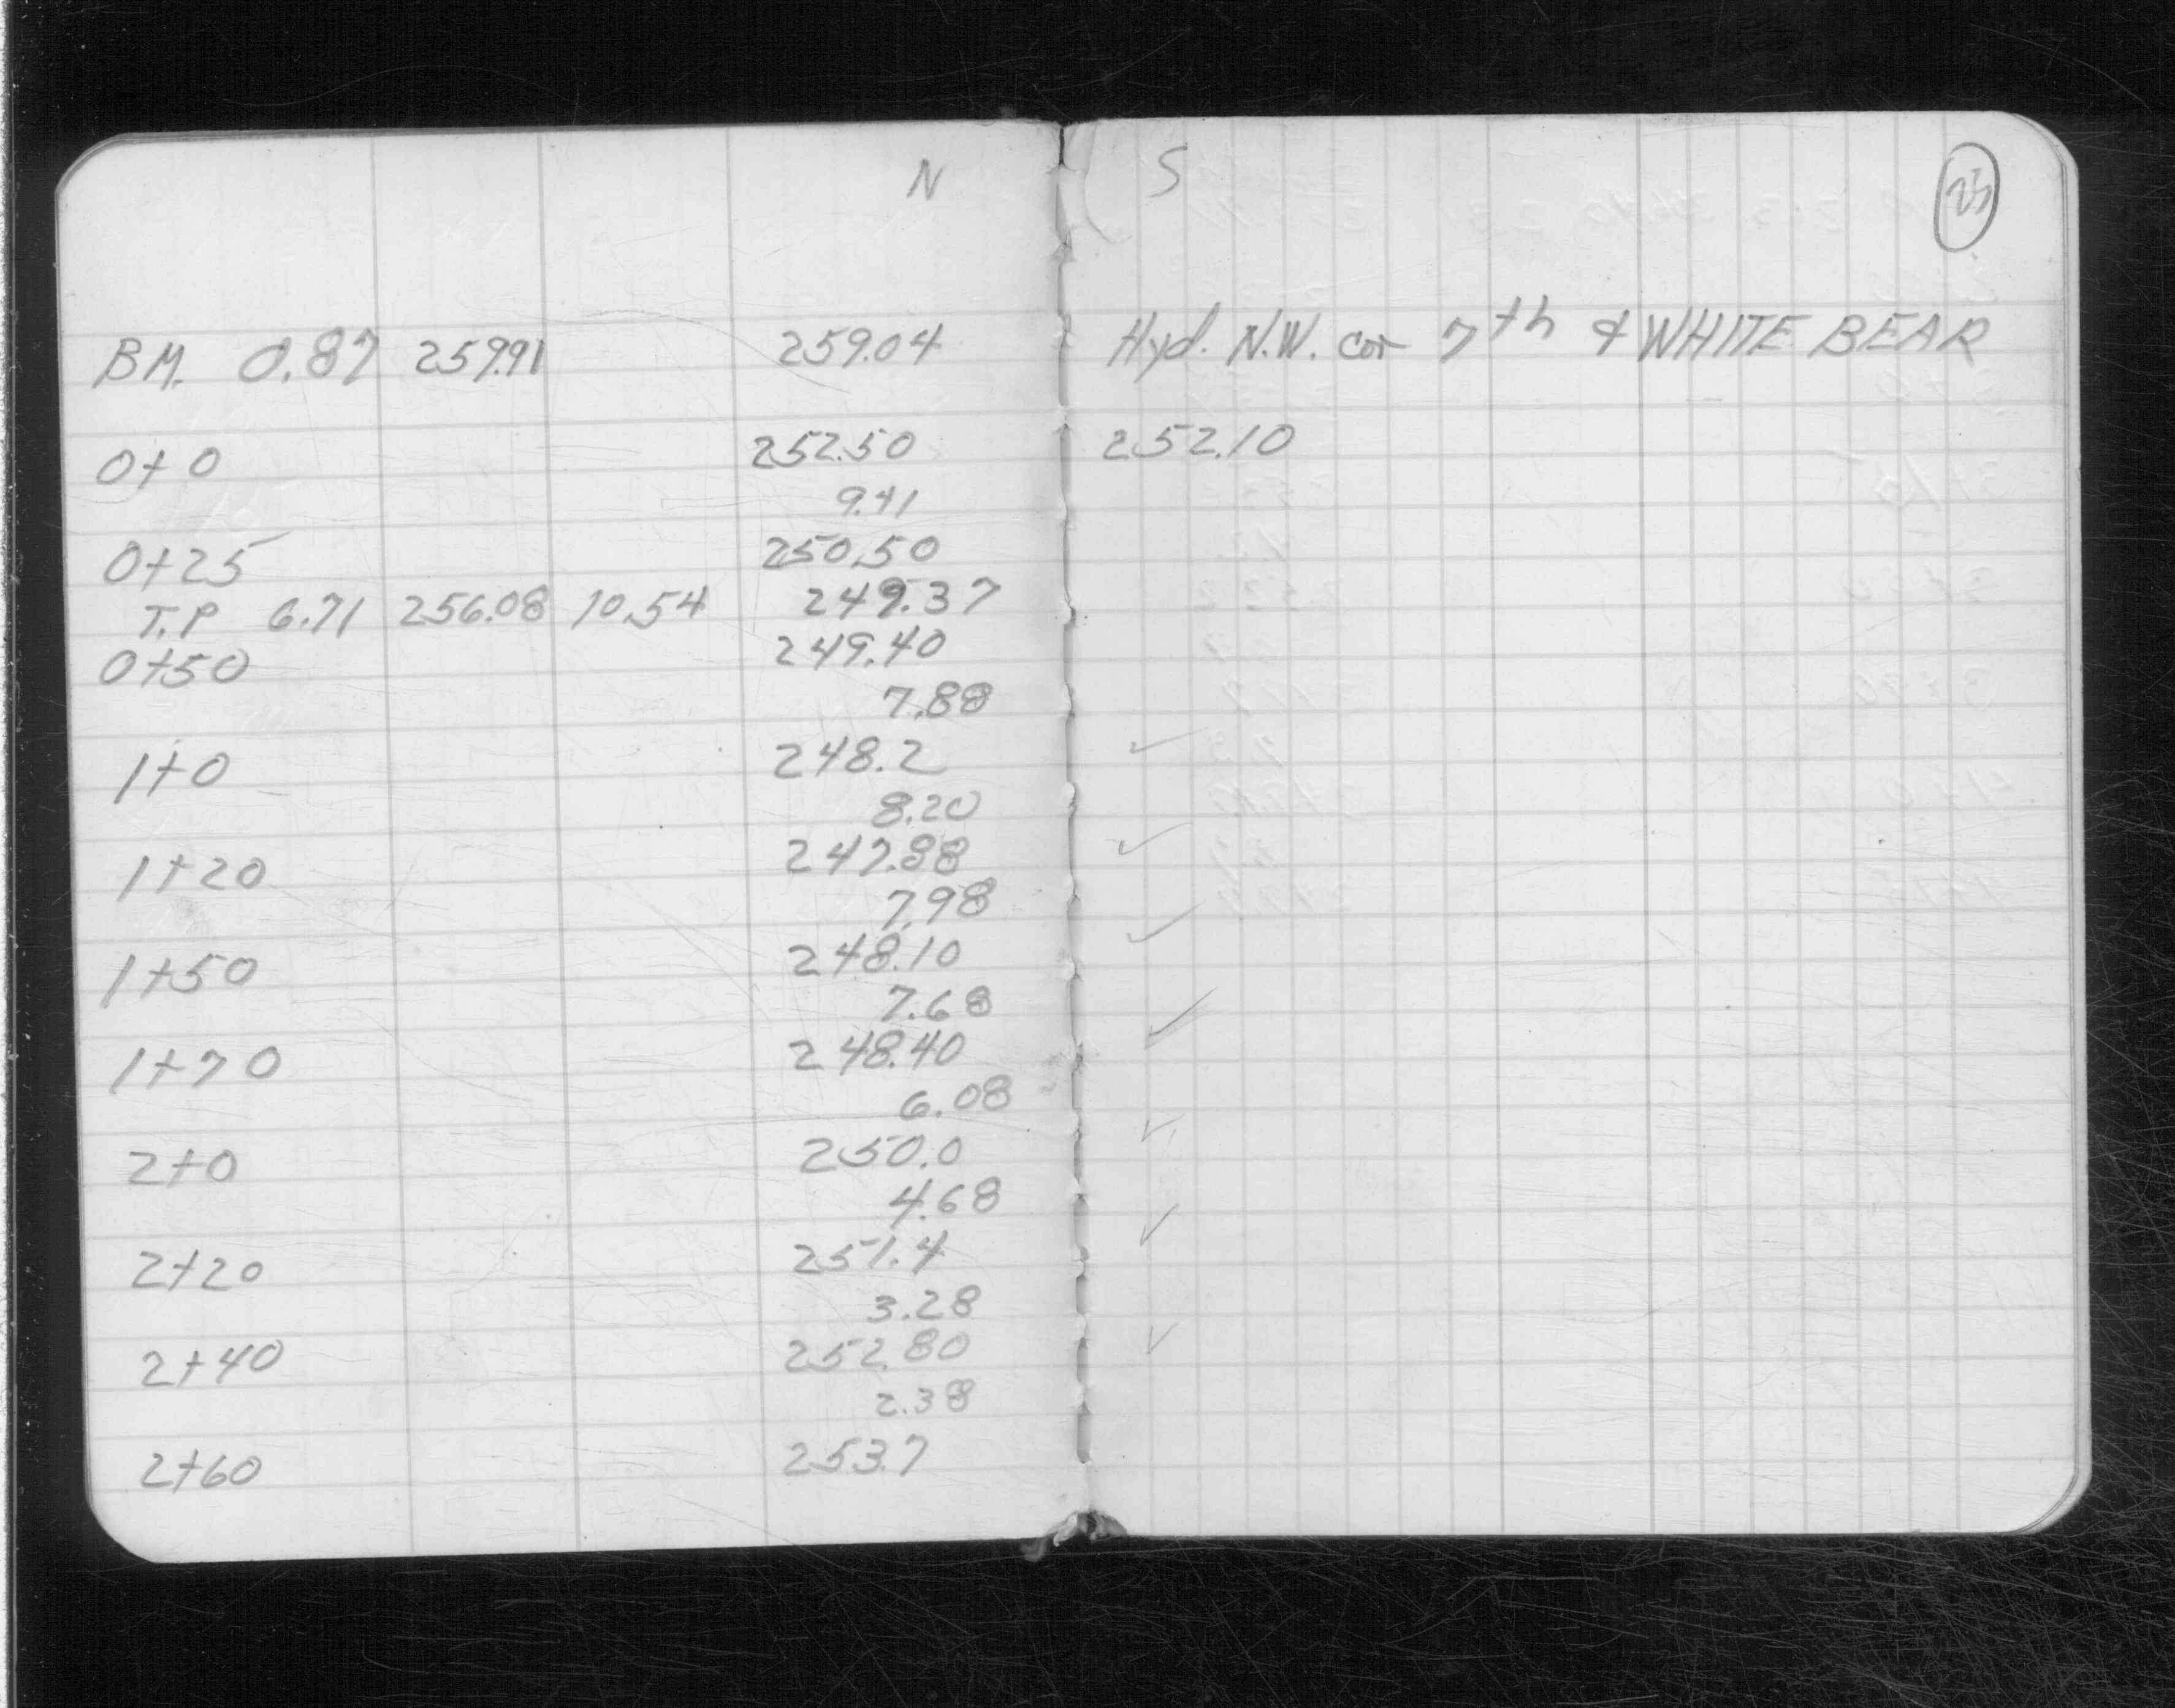 N S 25
BM. 0.87 259.91 259.04 Hyd. N.W. cor 7th & WHITE BEAR
0+0 252.50 252.10
9.41
0+25 250.50
T.P 6.71 256.08 10.54 249.37
0+50 249.40
7.88
1+0 248.2 ✓
8.20
1+20 247.88 ✓
7.98
1+50 248.10 ✓
7.68
1+70 248.40 ✓
6.08
2+0 250.0 ✓
4.68
2+20 251.4 ✓
3.28
2+40 252.80 ✓
2.38
2+60 253.7